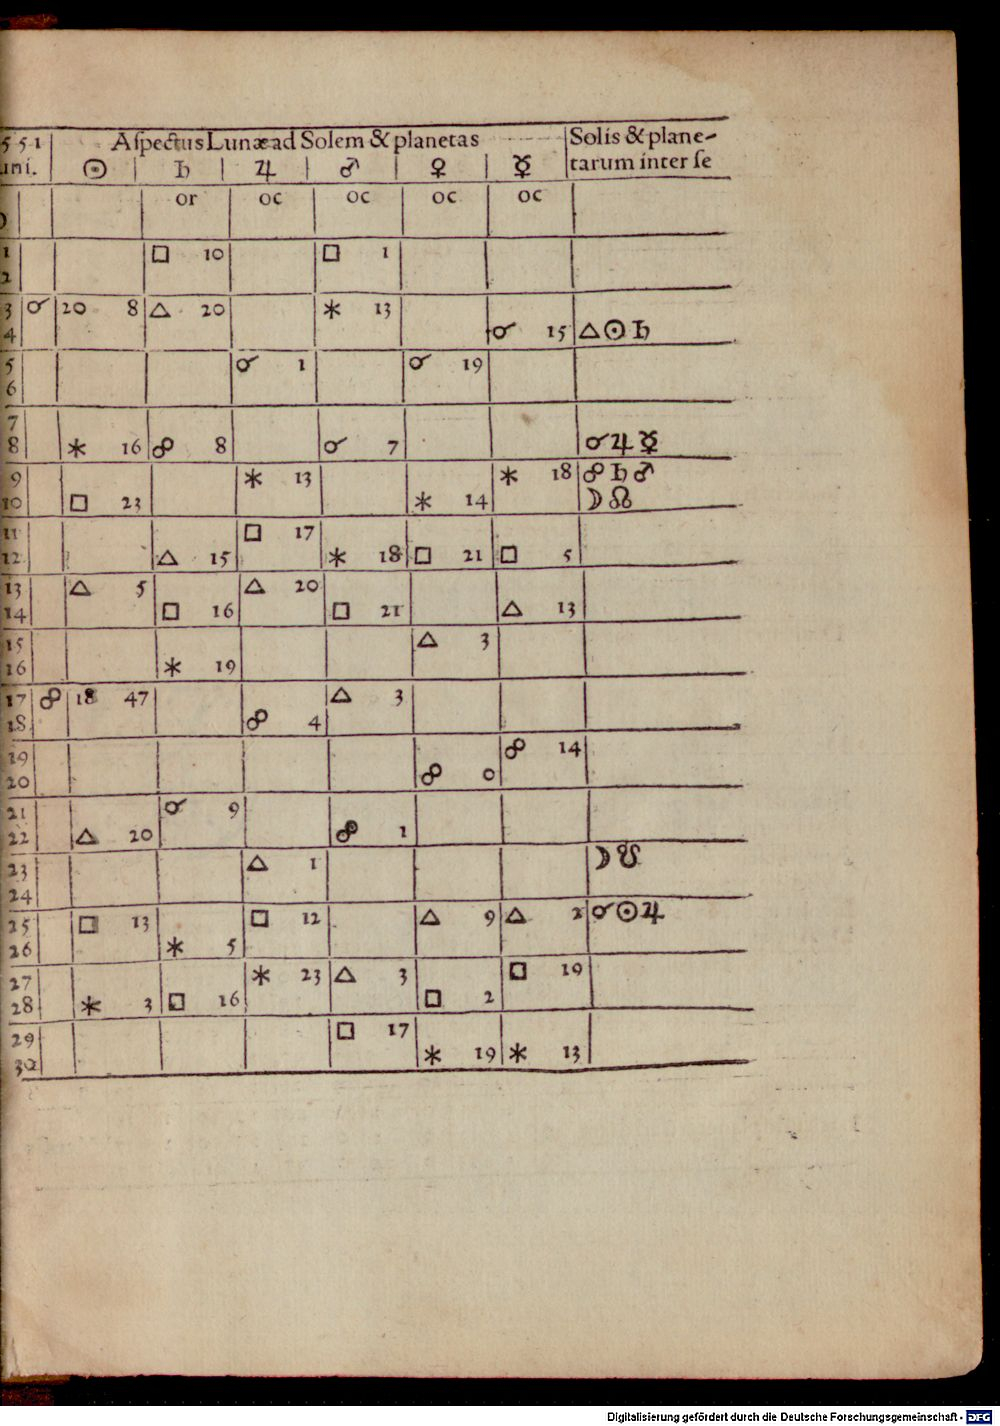 551 Aſpectus Lunæ ad Solem & planetas Solis & plane-
uni. ☉ ♄ ♃ ♂ ♀ ☿ tarum inter ſe
or oc oc oc oc
1 □ 10 □ 1
2
3 ☌ 20 8 △ 20 ⚹ 13
4 ☌ 15 △ ☉ ♄
5 ☌ 1 ☌ 19
6
7
8 ⚹ 16 ☍ 8 ☌ 7 ☌ ♃ ☿
9 ⚹ 13 ⚹ 18 ☍ ♄ ♂
10 □ 23 ⚹ 14 ☽ ☊
11 □ 17
12 △ 15 ⚹ 18 □ 21 □ 5
13 △ 5 △ 20
14 □ 16 □ 21 △ 13
15 △ 3
16 ⚹ 19
17 ☍ 18 47 △ 3
18 ☍ 4
19 ☍ 14
20 ☍ 0
21 ☌ 9
22 △ 20 ☍ 1
23 △ 1 ☽ ☋
24
25 □ 13 □ 12 △ 9 △ 2 ☌ ☉ ♃
26 ⚹ 5
27 ⚹ 23 △ 3 □ 19
28 ⚹ 3 □ 16 □ 2
29 □ 17
30 ⚹ 19 ⚹ 13
Digitalisierung gefördert durch die Deutsche Forschungsgemeinschaft - DFG